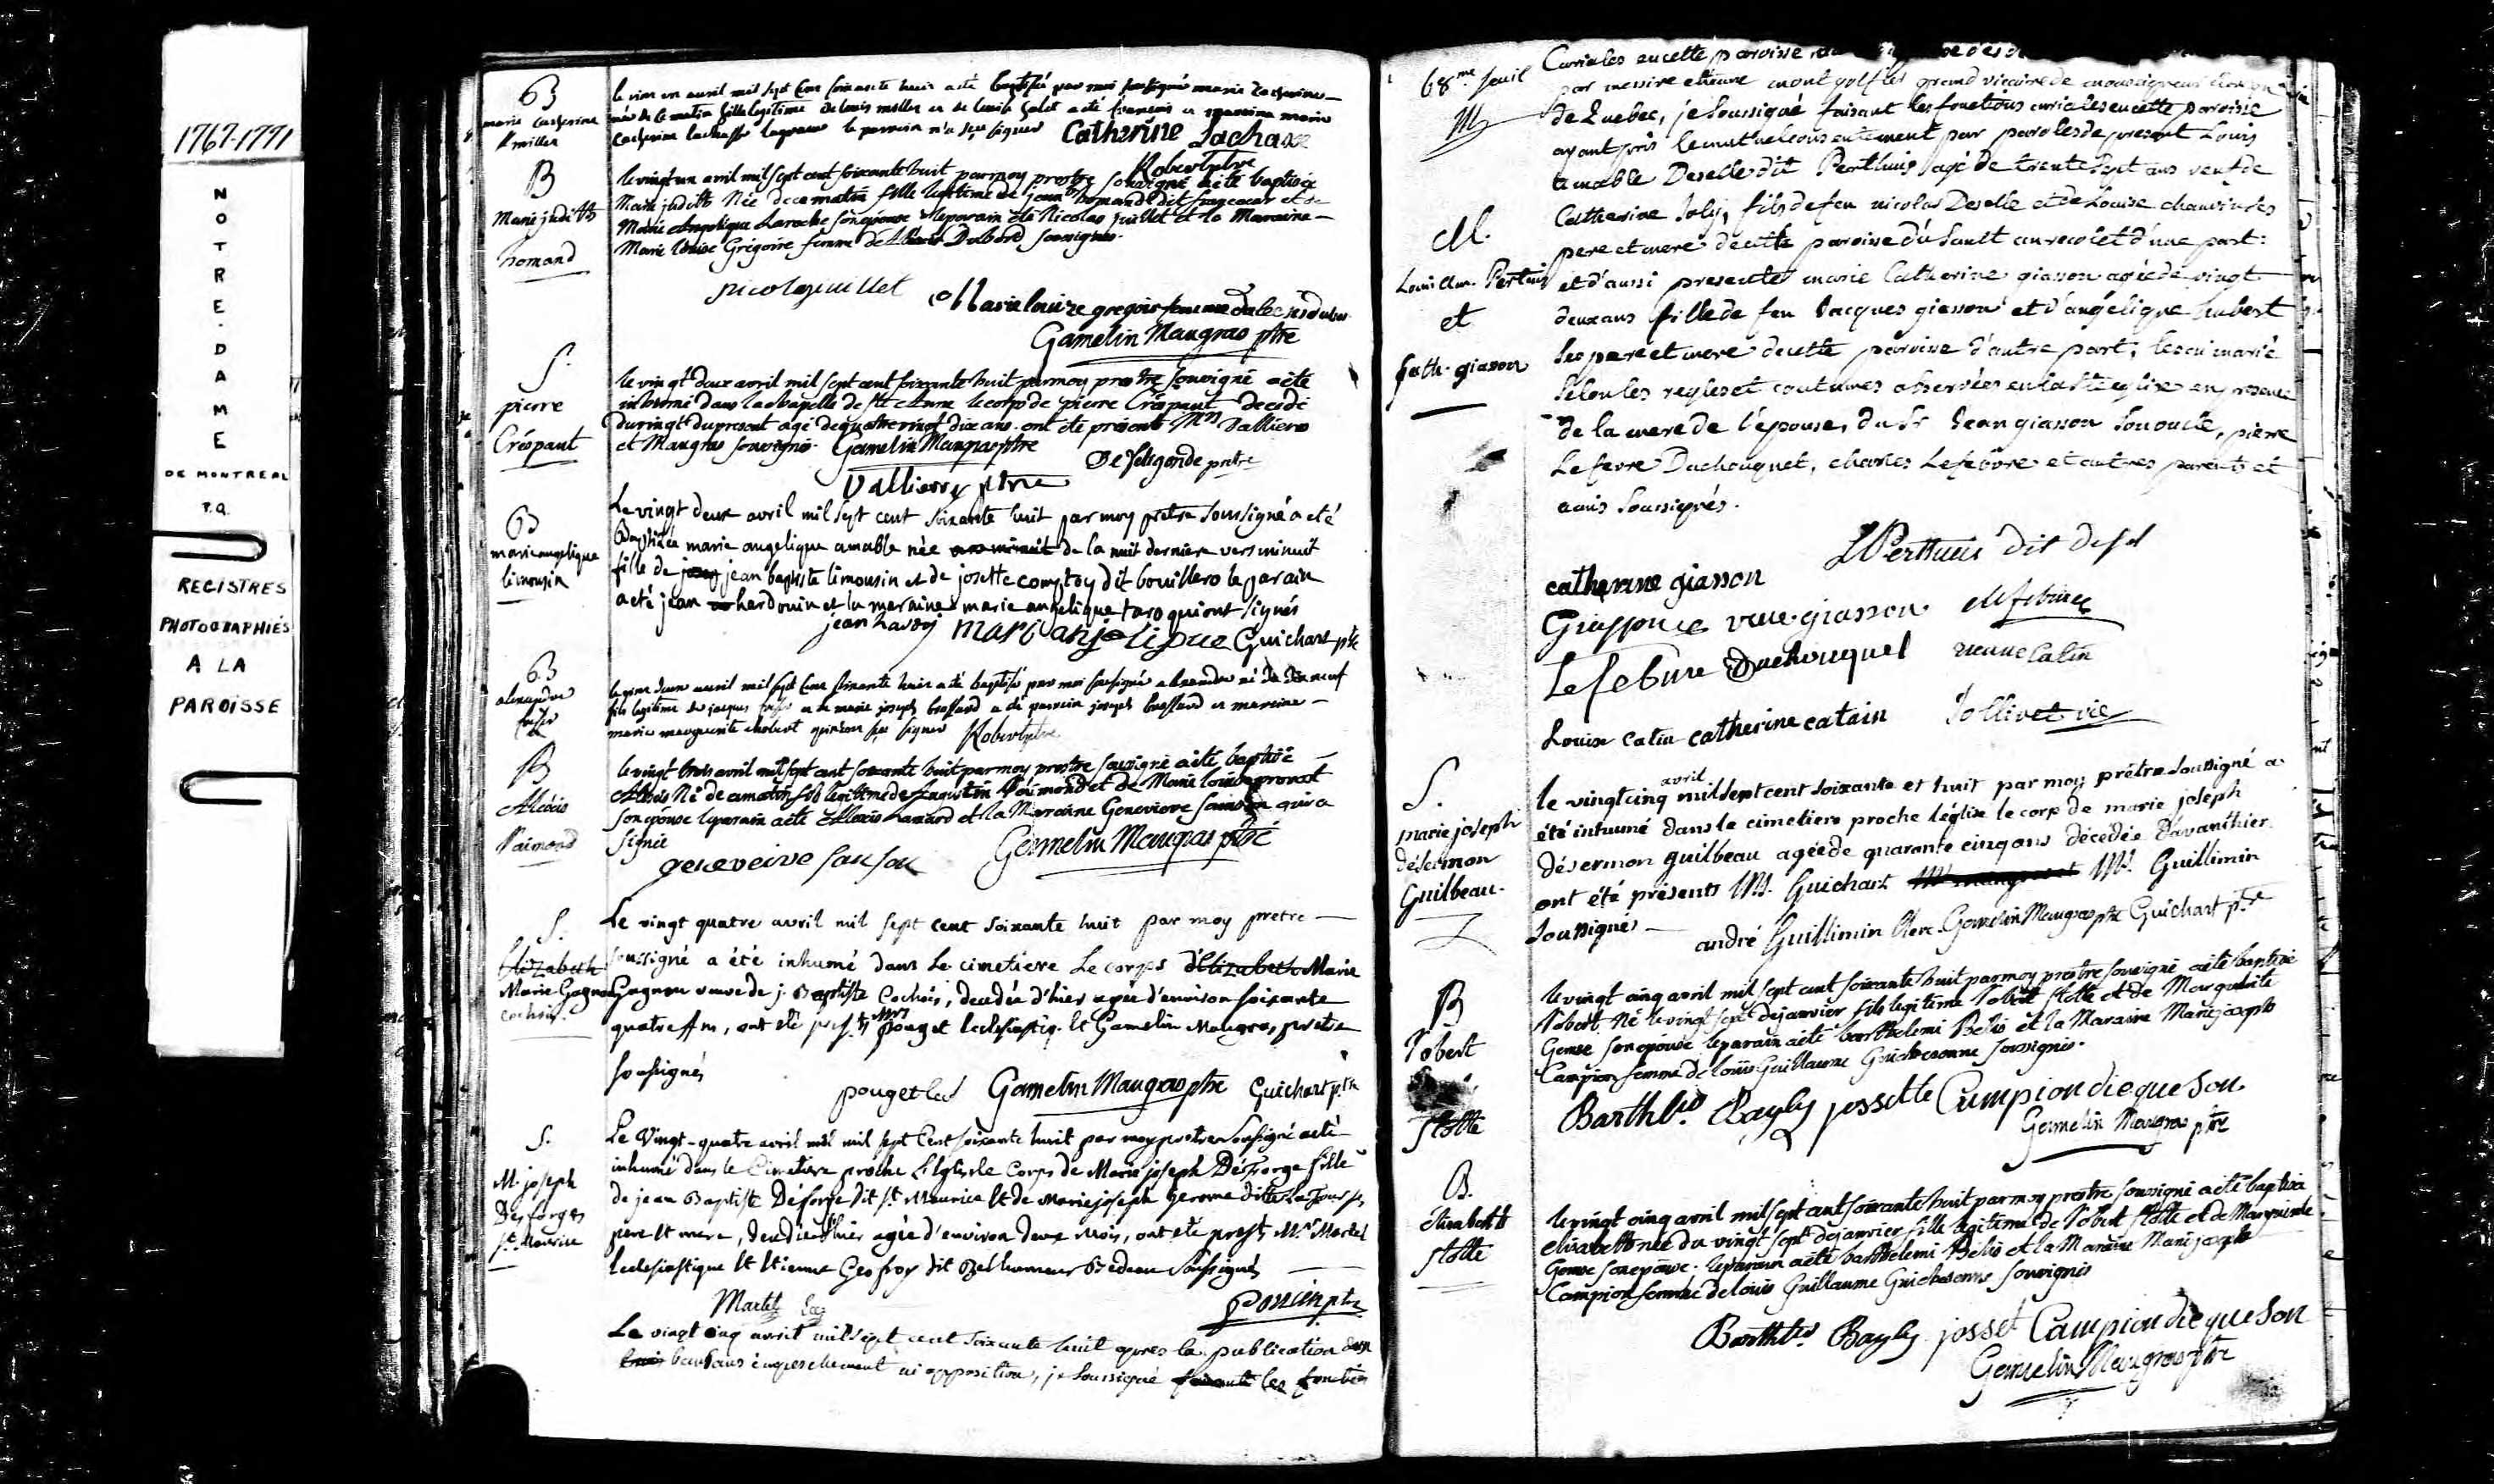 1767-1771
NOTRE-DAME
DE MONTREAL
P.Q.
REGISTRES
PHOTOGRAPHIÉS
A LA
PAROISSE
B
marie catherine
miller
le vingt un avril mil sept cent soixante huit a été baptisée par moi soussigné marie catherine
née de ce matin fille legitime de louis miller et de louise a été francois et marraine marie
catherine lachasse laquelle le parrain n'a sçu signer Catherine Lachasse
Robert ptre
B
Marie judith
homand
le vingt un avril mil sept cent soixante huit par moy prestre soussigné a été baptisée
Marie judith Née de ce matin fille legitime de jean homand dit et de
Marie Angelique Laroche son épouse le parain été Nicolas juillet et la Maraine
Marie louise Grégoire femme de Dubord soussignés.
Nicolas juillet
Marie louize gregoir femme
Gamelin Maugras ptre
S.
pierre
Crépaut
le vingt deux avril mil sept cent soixante huit par moy prestre soussigné a été
inhumé dans la chapelle de Ste Anne le corps de pierre Crépaut decedé
du vingt du present agé de quatre vingt dix ans. ont été présent Mrs Vallieres
et Maugras soussignés. Gamelin Maugras ptre
De Feligonde pretre
Vallieres ptre
B
marie angelique
limousin
Le vingt deux avril mil sept cent soixante huit par moy prêtre soussigné a eté
Baptisée marie angelique amable née de la nuit derniere vers minuit
fille de jean baptiste limousin et de josette comptoy dit bouillero le parain
a eté jean hardouin et la maraine marie angelique taro qui ont signés
jean hardoi mari anjelique Guichart ptre
B
alexandre
le vingt deux avril mil sept cent soixante huit a été baptisé par moi soussigné alexandre né de dix neuf
fils legitime de jacques et de marie joseph brossard a été parrain joseph brossard et marraine
marie marguerite chobert qui n'ont sçu signer Robert ptre
B
Alexis
Raimond
le vingt trois avril mil sept cent soixante huit par moy prestre soussigné a été baptisé
Alexis Né de ce matin fils legitime de Augustin Raimond et de Marie louise provost
son épouse le parain a été Alexis et la Maraine Genevieve Samson qui a
signée
genevieve sanson Gamelin Maugras ptre
S.
Elizabeth
Marie Gagnon
cochois.
Le vingt quatre avril mil sept cent soixante huit par moy pretre
soussigné a été inhumé dans le cimetiere le corps d'Elizabeth Marie
Gagnon veuve de j. Baptiste Cochois, decedée d'hier agée d'environ soixante
quatre Ans, ont été prests Mrs pouget Ecclesiastiq. et Gamelin Maugras pretre
soussignés
pouget Gamelin Maugras ptre Guichart ptre
S.
M. joseph
Desforges
st. Maurice
Le Vingt-quatre avril mil sept Cent soixante huit par moy pretre soussigné a été
inhumé dans le Cimetiere proche L'Eglise le Corps de Marie joseph Desforge fille
de jean Baptiste Desforge dit st. Maurice et de Marie joseph Gerome dite
pere et mere, decedée d'hier agée d'environ deux Mois, ont été prests Mr. Martel
Ecclesiastique et Etienne Geofroy dit Belhumeur Bedeau soussignés
Martel
Poncin ptre
Le vingt cinq avril mil sept cent soixante huit apres la publication d'un
ban sans empeschement ni opposition, je soussigné faisant les fonctions
68me feuil
M
Louis Am. Pertuis
et
Cath. giasson
Curiales en cette paroisse
par messire etienne montgolfier grand vicaire de monseigneur
de Quebec, je soussigné faisant les fonctions curiales en cette paroisse
ayant pris le mutuel consentement par paroles de present Louis
amable Deselle dit Perthuis agé de trente sept ans veuf de
Catherine Joly, fils de feu nicolas Deselle et de Louise chauvin ses
pere et mere de cette paroisse du Sault au recolet d'une part:
et d'aussi presente marie Catherine giasson agée de vingt
deux ans fille de feu Jacques giasson et d'angélique hubert
ses pere et mere de cette paroisse d'autre part; les ai marié
selon les regles et coutumes observées en la Ste eglise en presence
de la mere de l'épouse, du Sr Jean giasson son oncle, pierre
Lefevre Duchouquet, charles Lefebvre et autres parents et
amis soussignés.
LPerthuis dit desel
catherine giasson
Giasson veuve giasson Lefebvre
Lefebvre Duchouquet veuve Catin
Louise Catin catherine catain Jollivet vic
S.
marie joseph
désermon
Guilbeau.
le vingt cinq avril mil sept cent soixante et huit par moy prêtre soussigné a
été inhumé dans le cimetiere proche l'église le corp de marie joseph
désermon guilbeau agée de quarante cinq ans décédée d'avanthier
ont été présents M. Guichart M. Guillimin
soussignés
andré Guillimin Gamelin Maugras ptre Guichart ptre
B
Robert
Stotte
le vingt cinq avril mil sept cent soixante huit par moy prestre soussigné a été baptisé
Robert Né le vingt sept de janvier fils legitime Robert Stotte et de Marguerite
Gemse son épouse le parain a été barthelemi Belis et la Maraine Marie joseph
Campion femme de louis Guillaume Guickesonne soussignés.
Barthlw. Bayly jossette Campion diequeson
Gamelin Maugras ptre
B.
Elisabeth
Stotte
le vingt cinq avril mil sept cent soixante huit par moy prestre soussigné a été baptisé
Elisabeth née du vingt sept de janvier fille legitime de Robert Stotte et de Marguerite
Gemse son épouse. le parain a été barthelemi Belis et la Maraine Marie joseph
Campion femme de louis Guillaume Guickesonne soussignés
Barthlw. Bayly josset Campion diequeson
Gamelin Maugras ptre